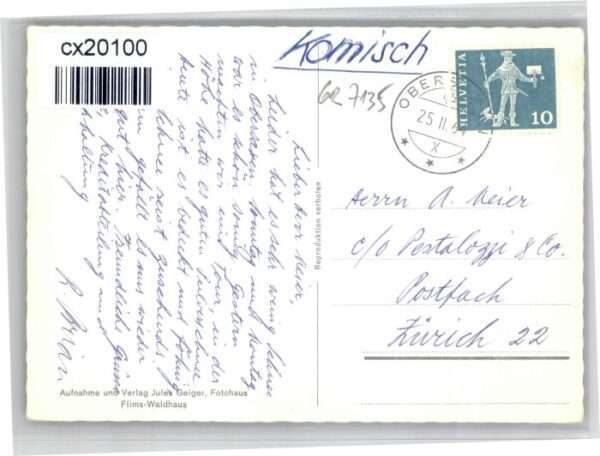 cx20100
Komisch
GR 7135
HELVETIA
10
OBERS
25 II
X
Lieber Herr Meier,
Leider hat es sehr wenig Schnee
in Obersaxen. Sonntag und Montag
war es schön sonnig. Gestern
machten wir eine Tour, in der
Höhe hatte es guten Pulverschnee
heute ist es bedeckt und föhnig
Schnee
gefällt es uns wieder
gut hier. Freundliche Grüsse
Kreditabteilung und
R.
Herrn A. Meier
c/o Pestalozzi & Co.
Postfach
Zürich 22
Reproduktion verboten
Aufnahme und Verlag Jules Geiger, Fotohaus
Flims-Waldhaus